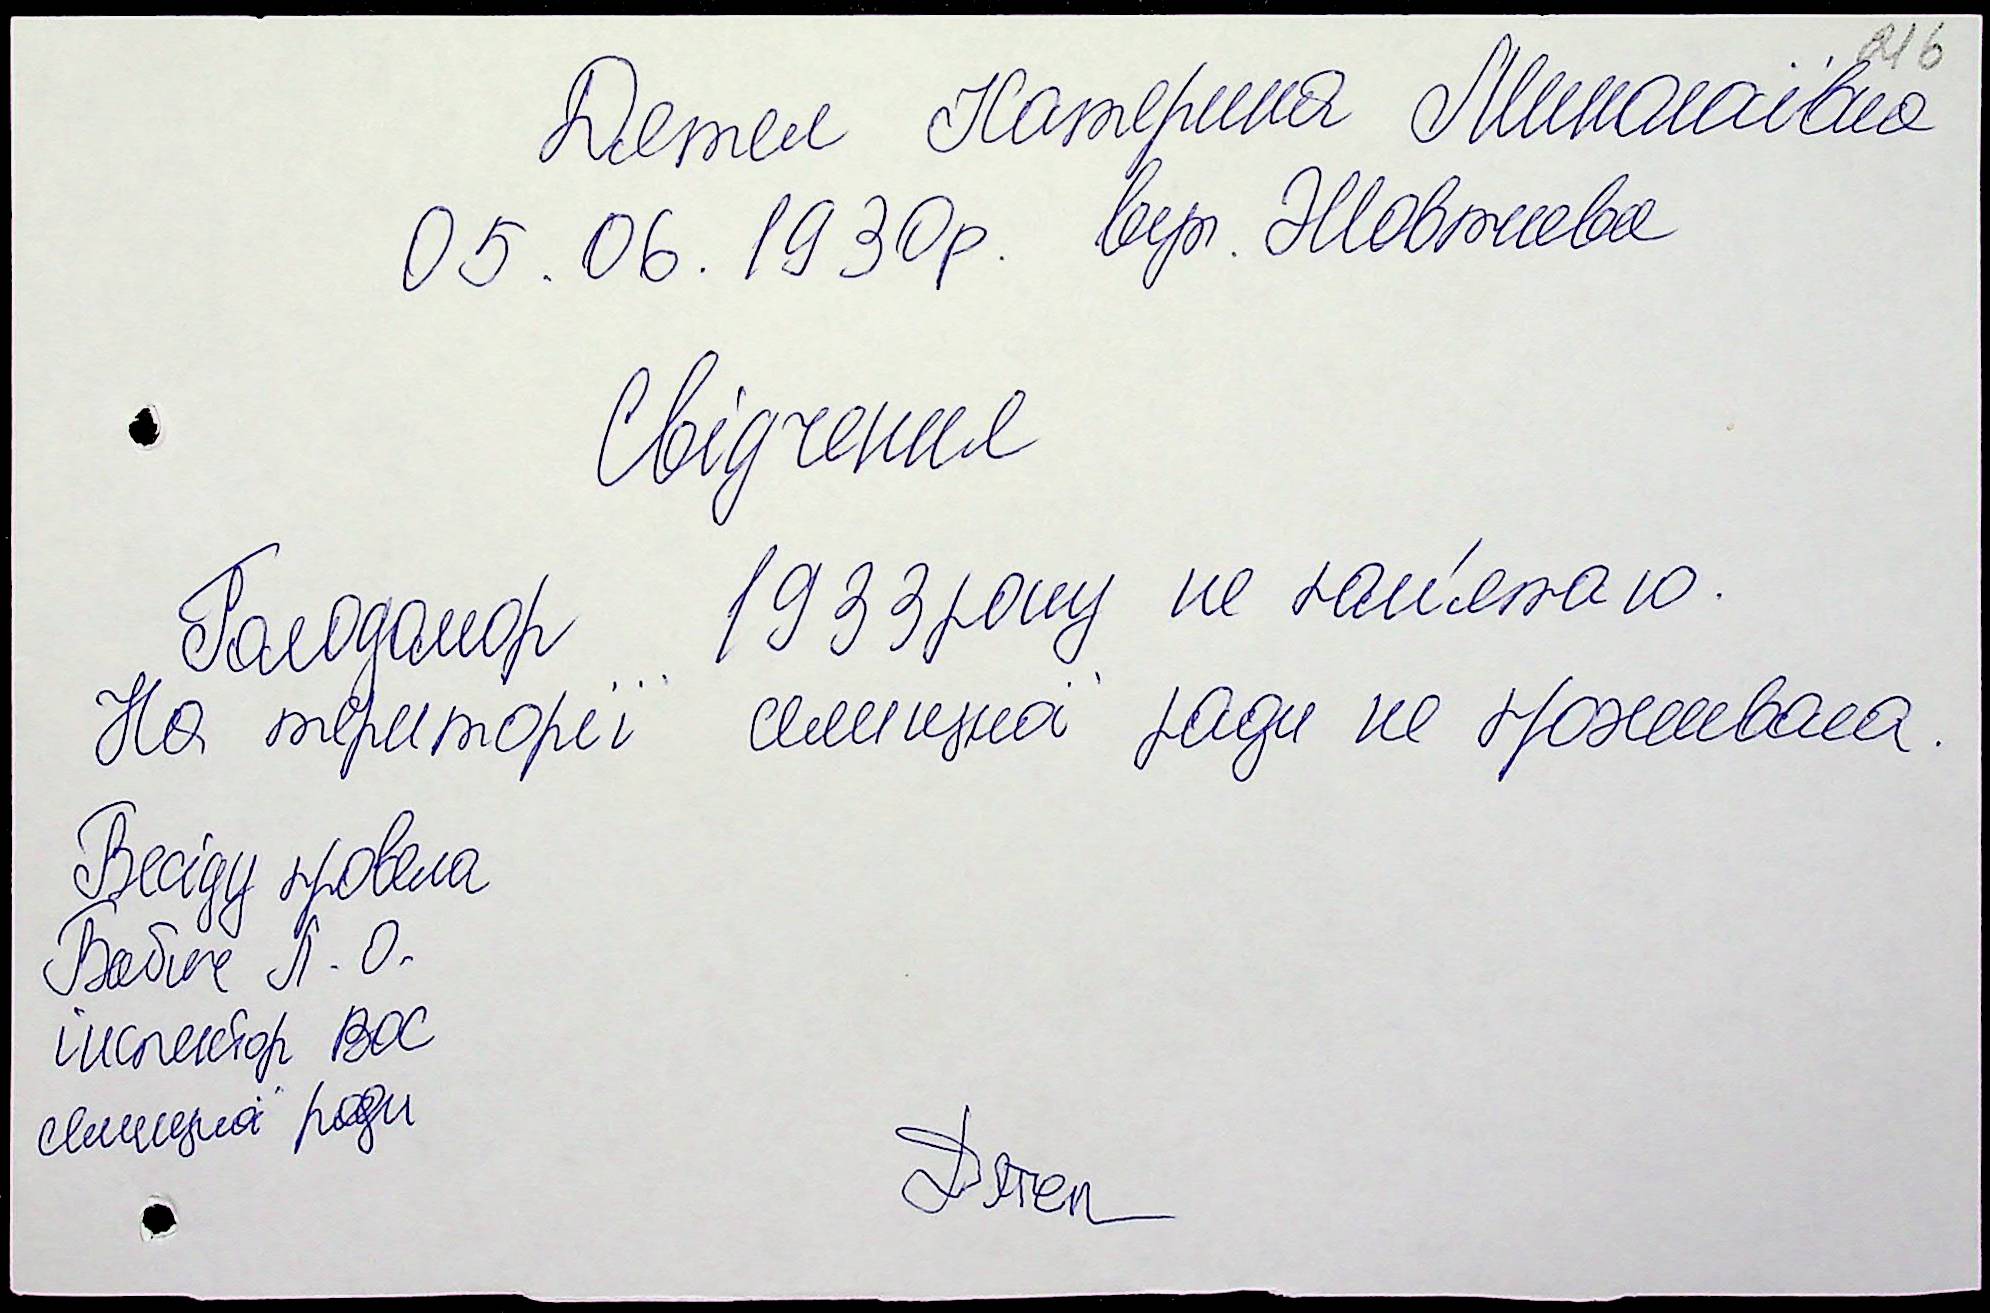 216
Дятел Катерина Миколаївна
05.06.1930р. вул. Жовтнева
Свідчення
Голодомор 1933 року не пам'ятаю.
На території селищної ради не проживала.
Бесіду провела
Бабич Л.О.
інспектор ВОС
селищної ради
Дятел